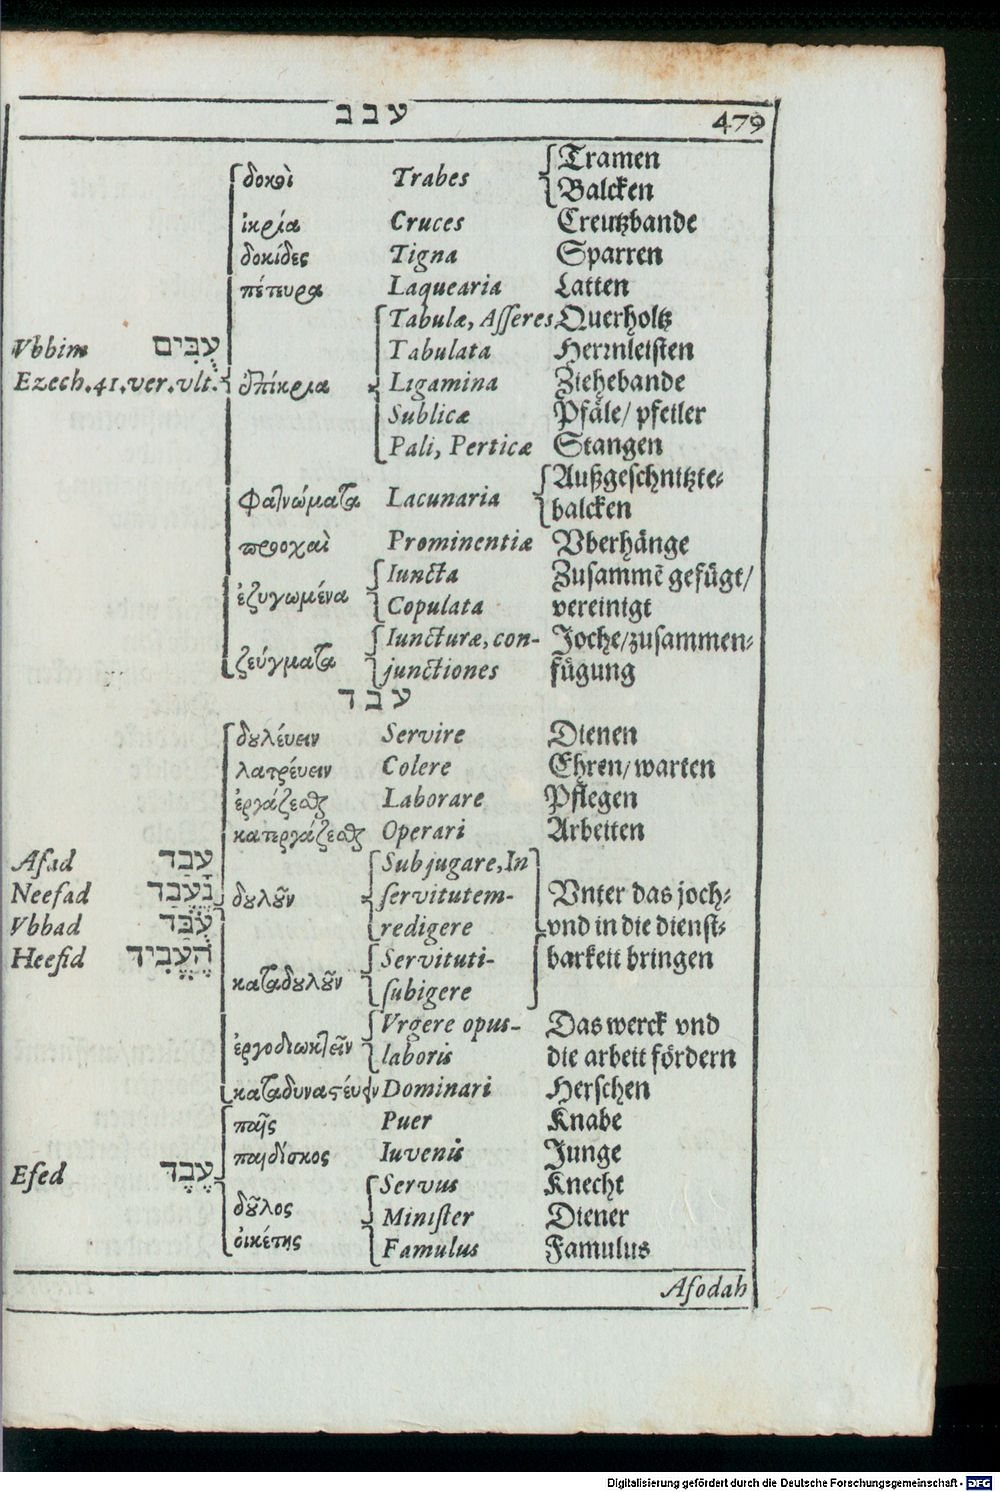 עבב 479
δοκοὶ Trabes Tramen
Balcken
ἰκρία Cruces Creutzbande
δοκίδες Tigna Sparren
πέτευρα Laquearia Latten
Tabulæ, Aſſeres Querholtz
Vbbim עֻבִּים Tabulata Herrnleiſten
Ezech. 41. ver. vlt. ἐπίκρια Ligamina Ziehebande
Sublicæ Pfäle/ pfeiler
Pali, Perticæ Stangen
φατνώματα Lacunaria Außgeſchnitzte-
balcken
προοχαὶ Prominentiæ Vberhänge
ἐζυγωμένα Iuncta Zuſammẽ gefügt/
Copulata vereinigt
ζεύγματα Iuncturæ, con- Joche/zuſammen-
junctiones fügung
עבד
δουλέυειν Servire Dienen
λατρέυειν Colere Ehren/ warten
ἐργάζεσθαι Laborare Pflegen
κατεργάζεσθαι Operari Arbeiten
Afad עָבַד Subjugare, In
Neefad נֶעֱבַד δουλοῦν ſervitutem- Vnter das joch-
Vbbad עֻבַּד redigere vnd in die dienſt-
Heefid הֶעֱבִיד Servituti- barkeit bringen
καταδουλοῦν ſubigere
ἐργοδιωκτεῖν Vrgere opus- Das werck vnd
laboris die arbeit fördern
καταδυναστέυειν Dominari Herſchen
παῖς Puer Knabe
παιδίσκος Iuvenis Junge
Efed עֶבֶד Servus Knecht
δοῦλος Miniſter Diener
οἰκέτης Famulus Famulus
Afodah
Digitalisierung gefördert durch die Deutsche Forschungsgemeinschaft - DFG